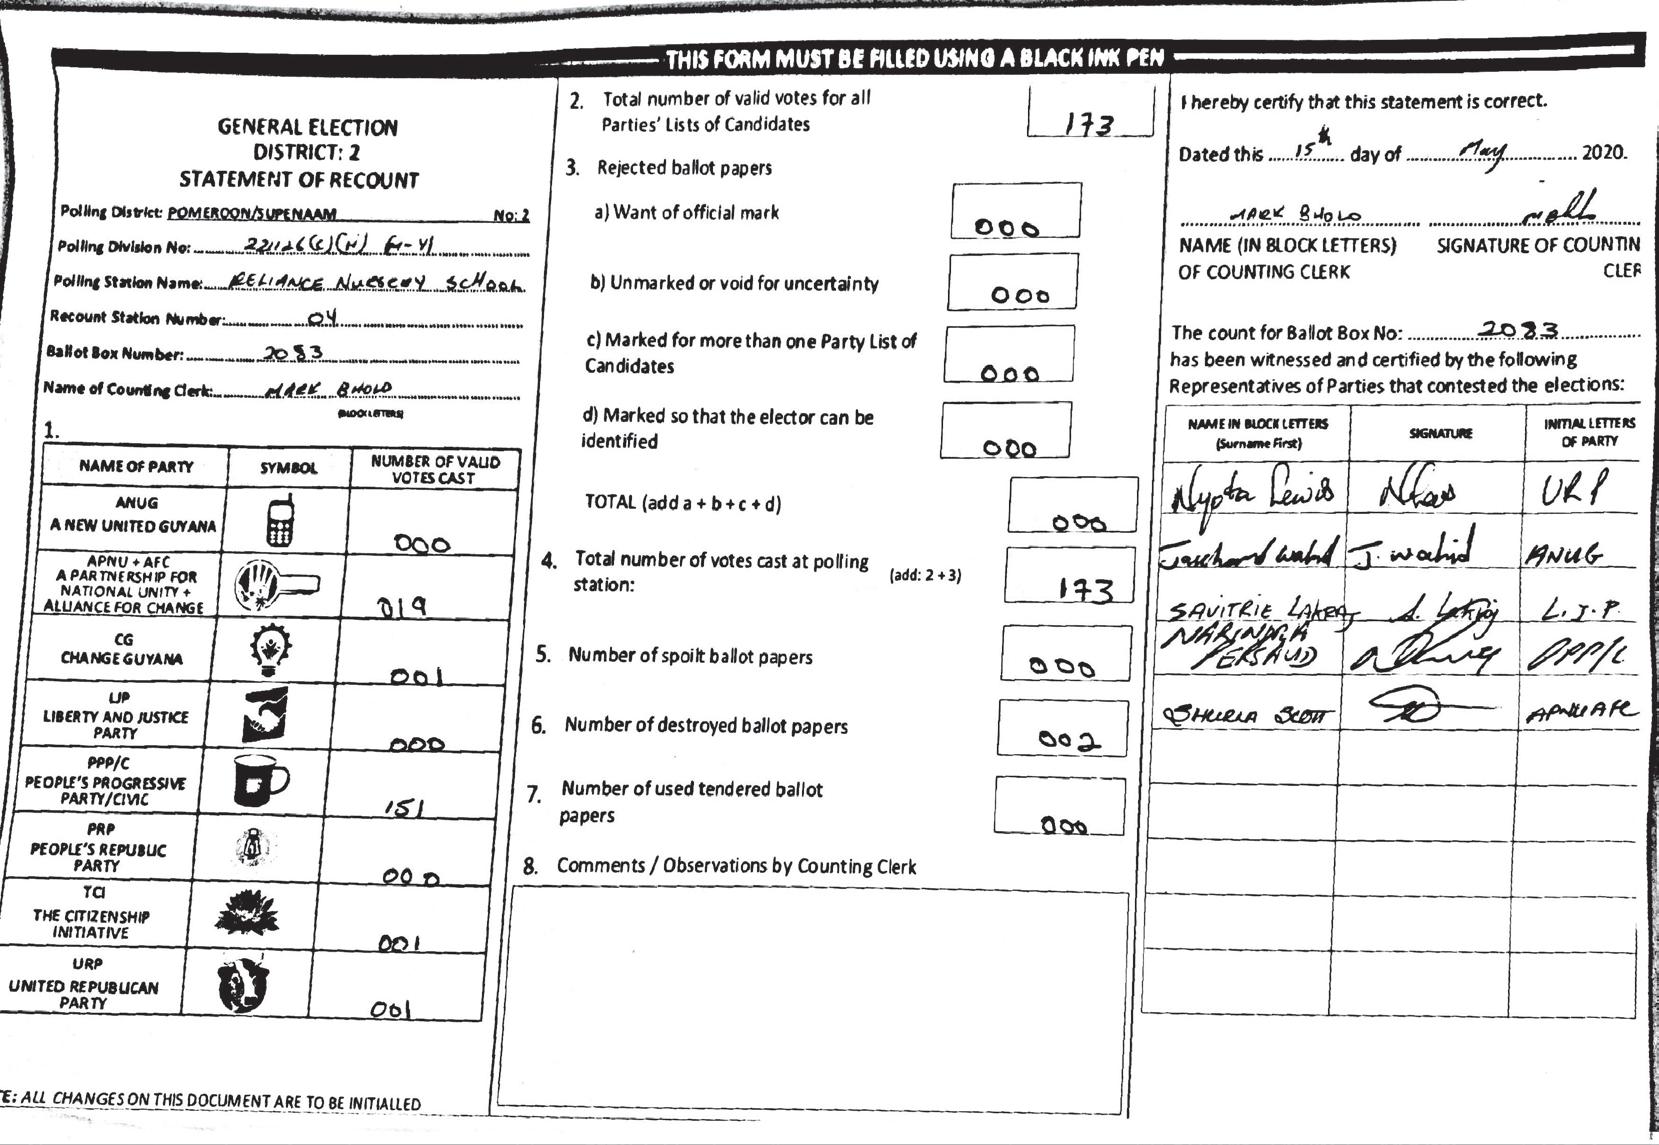 THIS FORM MUST BE FILLED USING A BLACK INK PEN
GENERAL ELECTION
DISTRICT: 2
STATEMENT OF RECOUNT
Polling District: POMEROON/SUPENAAM No: 2
Polling Division No:
Polling Station Name: RELIANCE NURSERY SCHOOL
Recount Station Number: 04
Ballot Box Number: 2083
Name of Counting Clerk: MARK BHOLO
(BLOCK LETTERS)
1.
NAME OF PARTY SYMBOL NUMBER OF VALID
VOTES CAST
ANUG
A NEW UNITED GUYANA
000
APNU + AFC
A PARTNERSHIP FOR
NATIONAL UNITY +
ALLIANCE FOR CHANGE
019
CG
CHANGE GUYANA
001
LJP
LIBERTY AND JUSTICE
PARTY
000
PPP/C
PEOPLE'S PROGRESSIVE
PARTY/CIVIC
151
PRP
PEOPLE'S REPUBLIC
PARTY
000
TCI
THE CITIZENSHIP
INITIATIVE
001
URP
UNITED REPUBLICAN
PARTY
001
TE: ALL CHANGES ON THIS DOCUMENT ARE TO BE INITIALLED
2. Total number of valid votes for all
Parties' Lists of Candidates
173
3. Rejected ballot papers
a) Want of official mark
000
b) Unmarked or void for uncertainty
000
c) Marked for more than one Party List of
Candidates
000
d) Marked so that the elector can be
identified
000
TOTAL (add a + b + c + d)
000
4. Total number of votes cast at polling
station: (add: 2 + 3)
173
5. Number of spoilt ballot papers
000
6. Number of destroyed ballot papers
002
7. Number of used tendered ballot
papers
000
8. Comments / Observations by Counting Clerk
I hereby certify that this statement is correct.
Dated this 15th day of May 2020.
MARK BHOLO
NAME (IN BLOCK LETTERS) SIGNATURE OF COUNTIN
OF COUNTING CLERK CLER
The count for Ballot Box No: 2083
has been witnessed and certified by the following
Representatives of Parties that contested the elections:
NAME IN BLOCK LETTERS SIGNATURE INITIAL LETTERS
(Surname First) OF PARTY
Lewis URP
J. Wahid ANUG
SAVITRIE L.J.P.
PERSAUD PPP/C
SCOTT APNU AFC